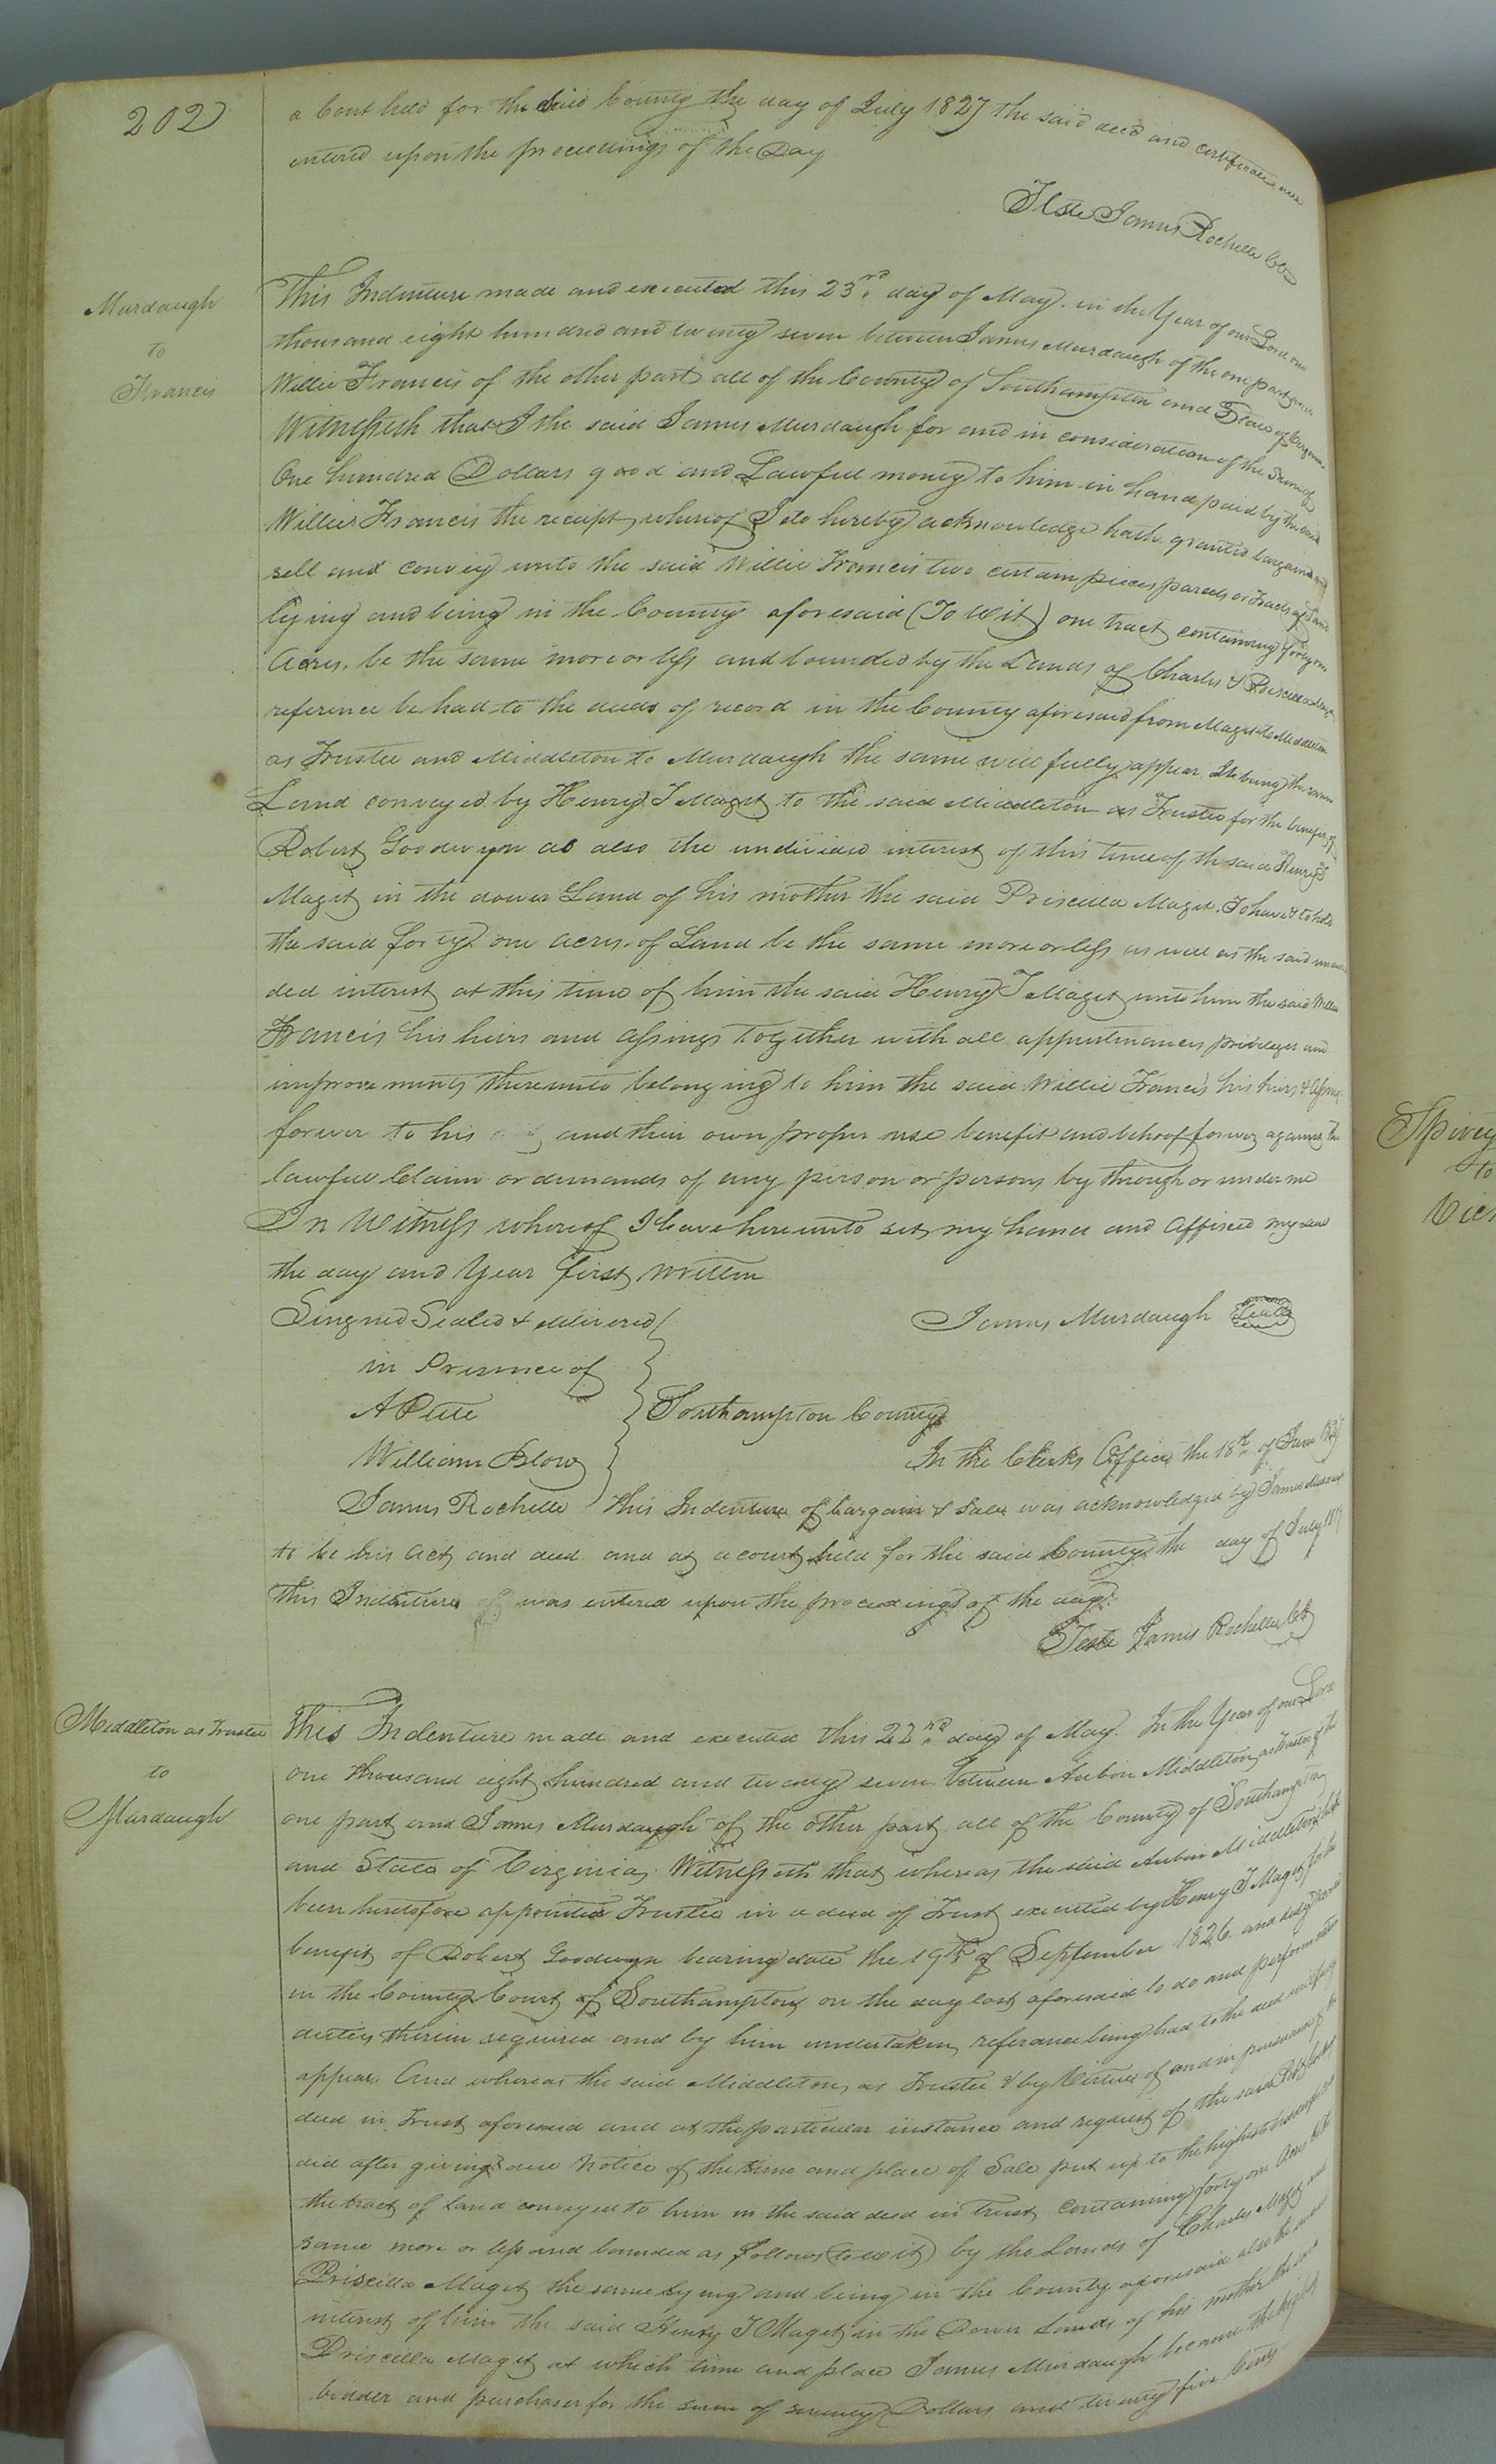 202
a Court held for the said County the day of July 1827 the said deed and certificate were
entered upon the proceedings of the Day
Teste James Rochelle Clk
Murdaugh
to
Francis
This Indenture made and executed this 23rd day of May in the Year of our Lord one
thousand eight hundred and twenty seven between James Murdaugh of the one part and
Willie Francis of the other part all of the County of Southampton and State of Virginia
Witnesseth that I the said James Murdaugh for and in consideration of the Sum of
One hundred Dollars good and Lawfull money to him in hand paid by the said
Willie Francis the receipt whereof I do hereby acknowledge hath granted bargained and
sell and convey unto the said Willie Francis two certain pieces parcels or Tracts of Land
lying and being in the County aforesaid (To wit) one tract containing forty one
Acres be the same more or less and bounded by the Lands of Charles & Priscilla Maget
reference be had to the deeds of record in the County aforesaid from Maget to Middleton
as Trustee and Middleton to Murdaugh the same will fully appear It being the same
Land conveyed by Henry J Maget to the said Middleton as Trustee for the benefit of
Robert Goodwyn as also the undivided interest of this time of the said Henry J
Maget in the dower Land of his mother the said Priscilla Maget To have & to hold
the said forty one acres of Land be the same more or less as well as the said undivi
ded interest at this time of him the said Henry J Maget unto him the said Willie
Francis his heirs and assings together with all appurtinances privileges and
improvements thereunto belonging to him the said Willie Francis his heirs & assings
forever to his and their own proper use benefit and behoof forever against the
lawfull Claim or demands of any person or persons by through or under me
In Witness whereof I have hereunto set my hand and affixed my seal
the day and Year first written
Singned Sealed & delivered
James Murdaugh Seal
in Presence of
A Pette
Southampton County
William Blow
In the Clerks Office the 18th of June 1827
James Rochelle This Indenture of bargain & Sale was acknowledged by James Murdaugh
to be his act and deed and at a court held for the said County the day of July 1827
this Indenture was entered upon the proceedings of the day
Teste James Rochelle Clk
Middleton as Trustee
to
Murdaugh
This Indenture made and executed this 22nd day of May In the Year of our Lord
one thousand eight hundred and twenty seven between Aubin Middleton as Trustee of the
one part and James Murdaugh of the other part all of the County of Southampton
and State of Virginia Witnesseth that whereas the said Aubin Middleton hath
been heretofore appointed Trustee in a deed of Trust executed by Henry J Maget for the
benefit of Robert Goodwyn bearing date the 19th of September 1826 and duly
in the County Court of Southampton on the day last aforesaid to do and perform
duties therein required and by him undertaken referance being had to the deed will fully
appear And whereas the said Middleton as Trustee & by Virtue of and in pursuance of the
deed in Trust aforesaid and at the particular instance and request of the said
did after giving due Notice of the time and place of Sale put up to the highest
the tract of Land conveyed to him in the said deed in Trust containing forty one Acres be the
same more or less and bounded as follows (to wit) by the Lands of Charles Maget and
Priscilla Maget the same lying and being in the County aforesaid also the
interest of him the said Henry J Maget in the Dower Lands of his mother the said
Priscilla Maget at which time and place James Murdaugh became the highest
bidder and purchaser for the sum of seventy Dollars and twenty five Cents
Spivey
to